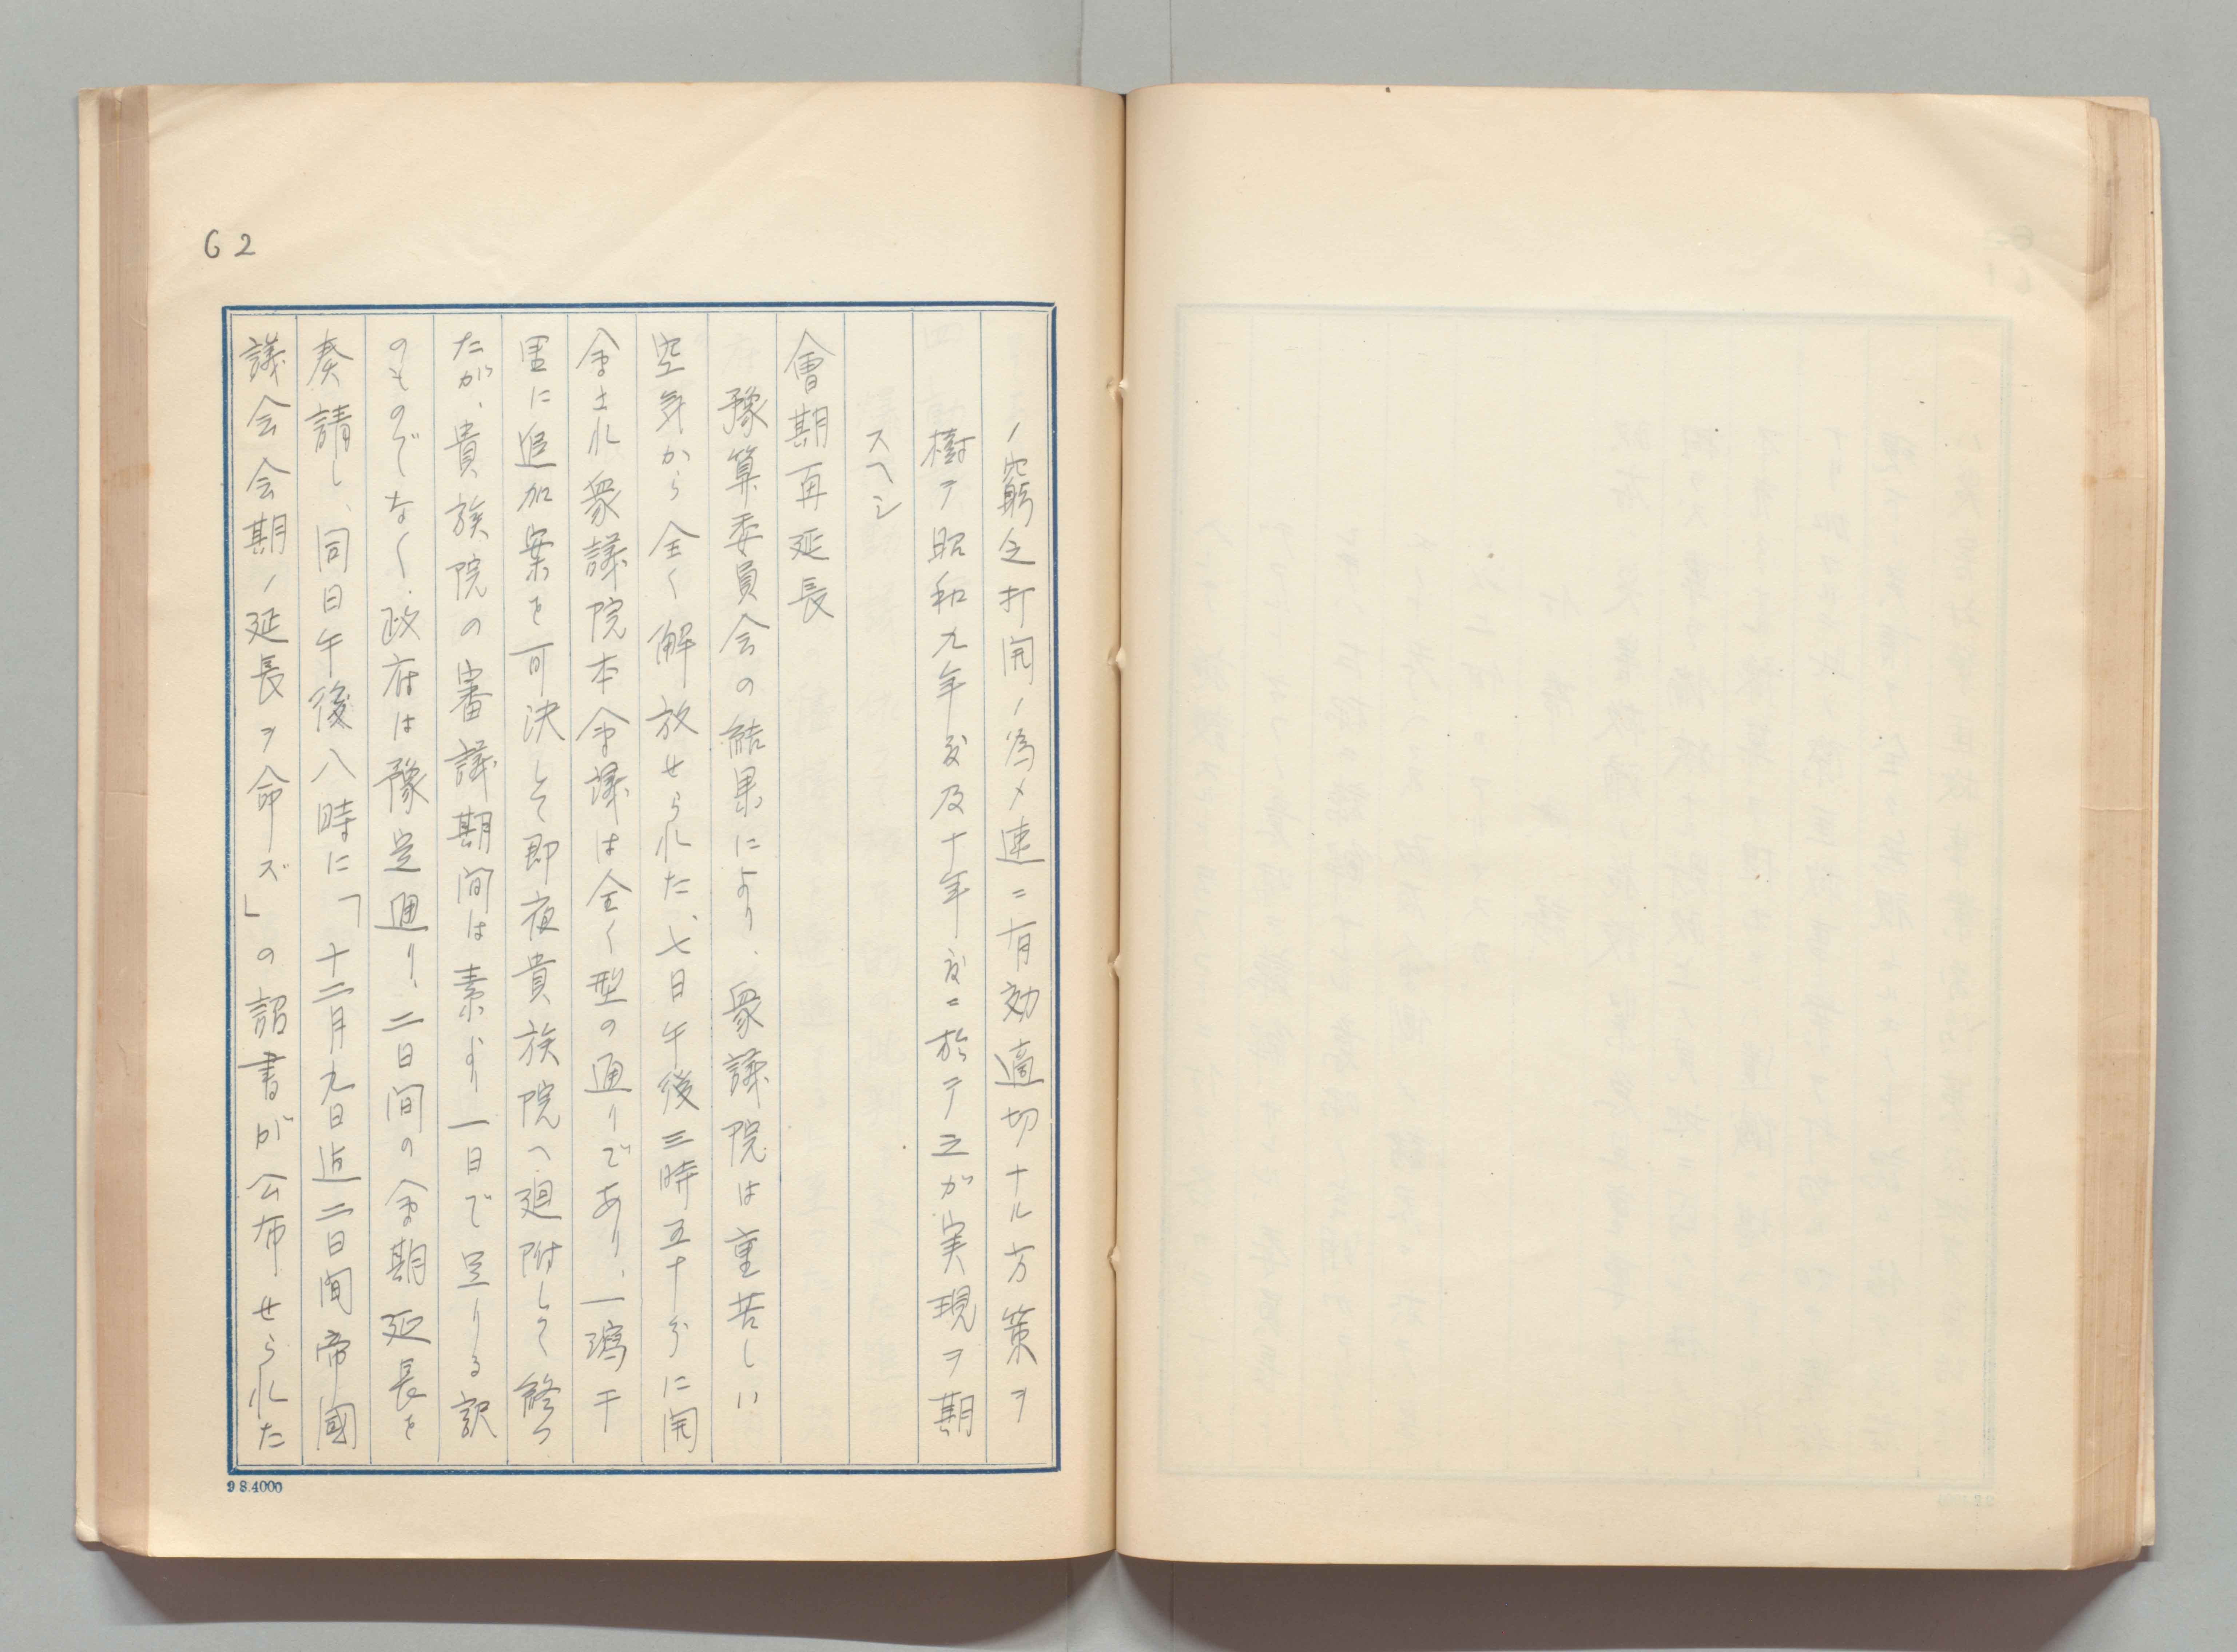 62
ノ窮乏打開ノ為メ速ニ有効適切ナル方策ヲ
樹テ昭和九年度及十年度ニ於テ之が実現ヲ期
スヘシ
會期再延長
豫算委員会の結果により、衆議院は重苦しい
空気から全く解放せられた、七日午後三時五十分に開
会され衆議院本会議は全く型の通りであり、一瀉千
里に追加案を可決して即夜貴族院へ廻附して終つ
たが、貴族院の審議期間は素より一日で足りる訳
のものでなく、政府は豫定通り、二日間の会期延長を
奏請し、同日午後八時に「十二月九日迄二日間帝國
議会会期ノ延長ヲ命ズ」の詔書が公布せられた
9 8.4000